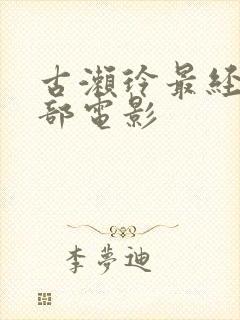 古瀬玲最経
部電影
李夢迪